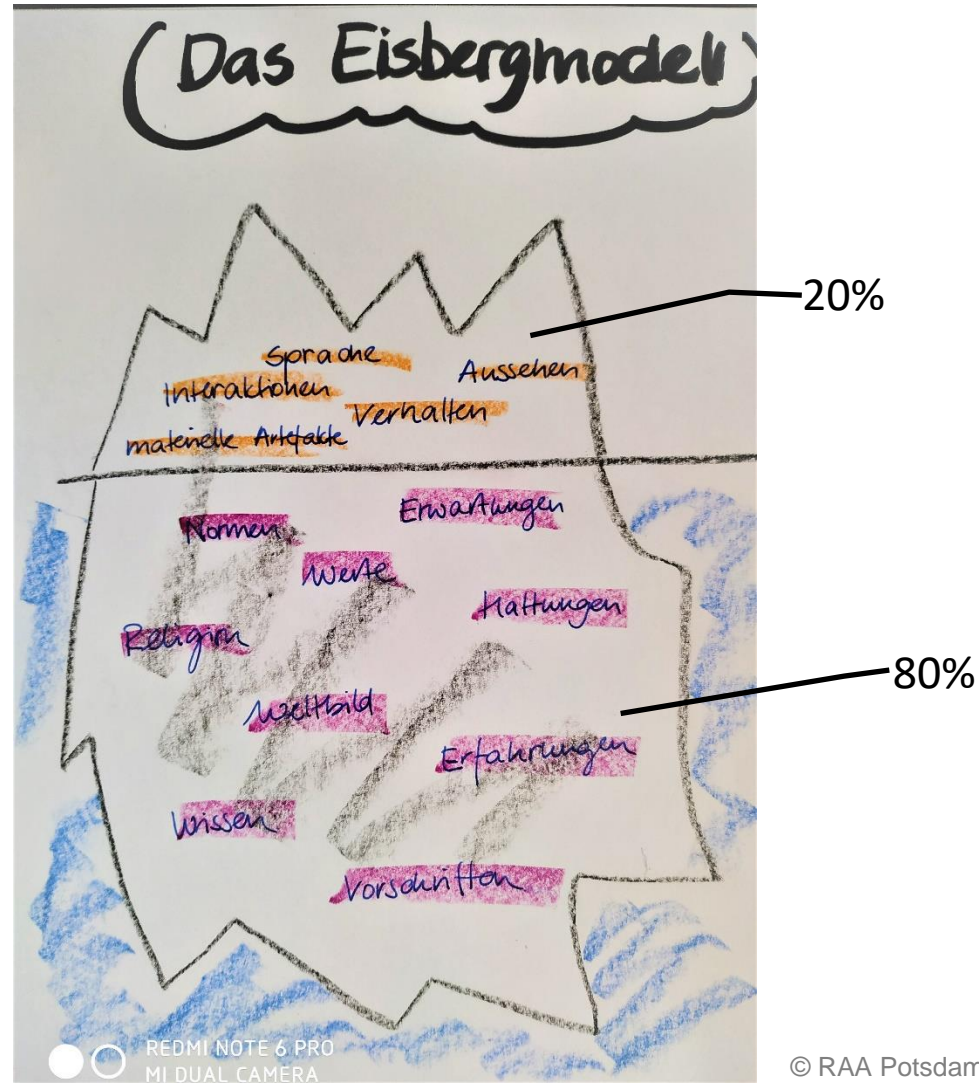 Das Eisbergmodell
20%
Sprache
Aussehen
Interaktionen
Verhalten
materielle Artefakte
Erwartungen
Normen
Werte
Haltungen
Religion
80%
Weltbild
Erfahrungen
Wissen
Vorschriften
REDMI NOTE 6 PRO
MI DUAL CAMERA
© RAA Potsdam